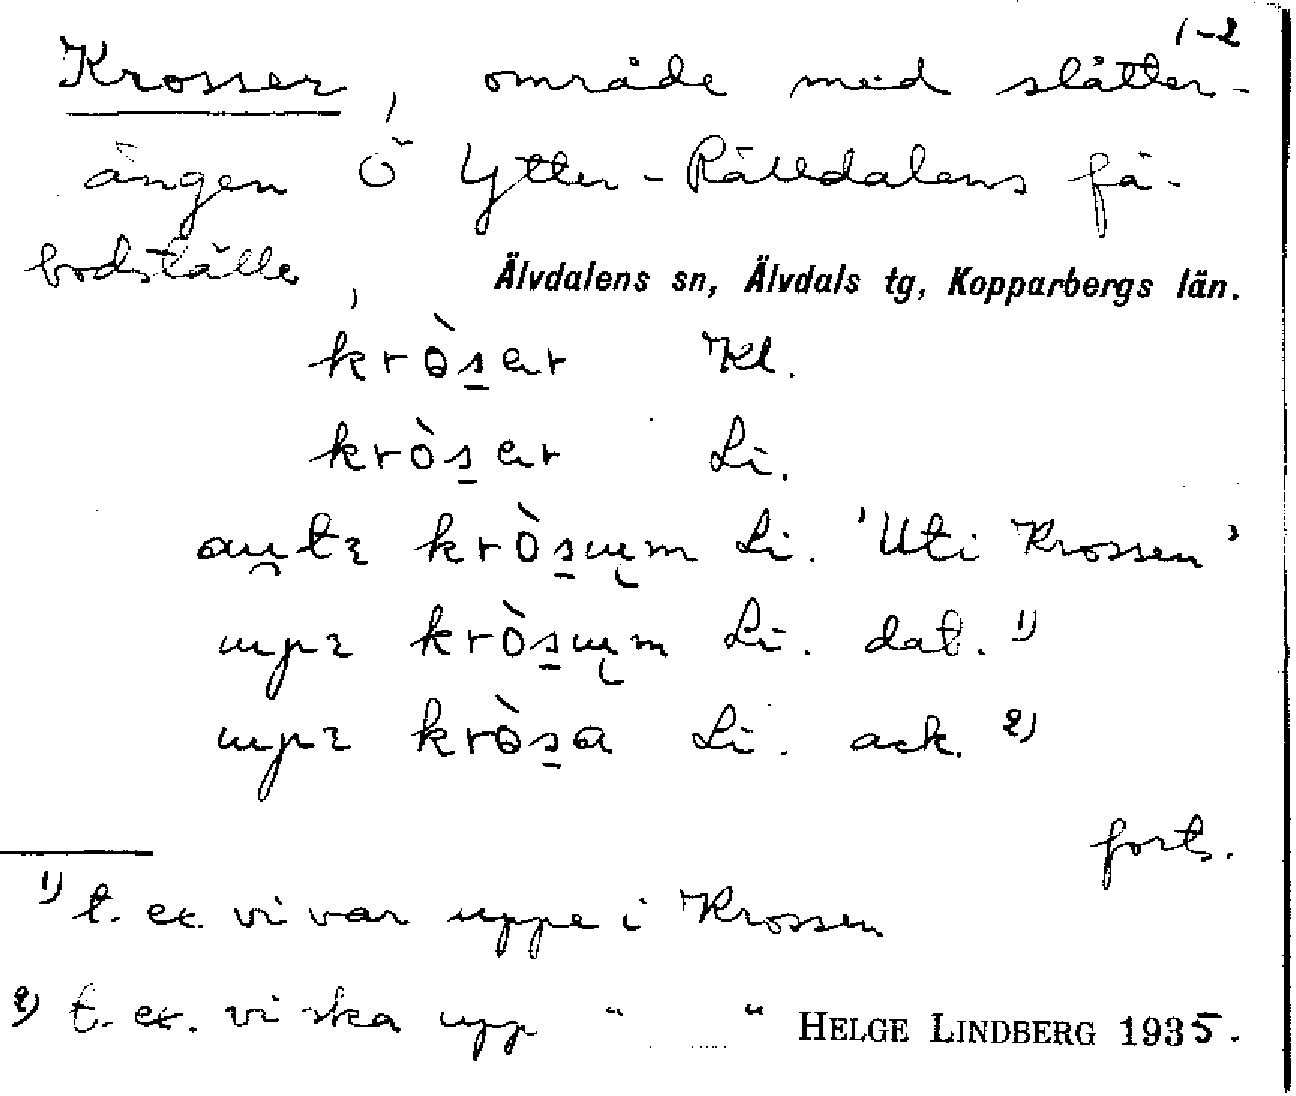 1-2
Krosser, område med slåtter-
ängen Ö Ytter-Rålldalens fä-
bodställe,
Älvdalens sn, Älvdals tg, Kopparbergs län.
kròsar Kl.
kròsar Li.
Li. 'Uti Krossen'
Li. dat. 1)
kròsa Li. ack. 2)
forts.
1) t. ex. vi var uppe i Krossen
2) t. ex. vi ska upp " "
HELGE LINDBERG 1935.